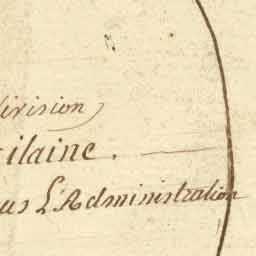 ivision
ilaine.
us L'Administration